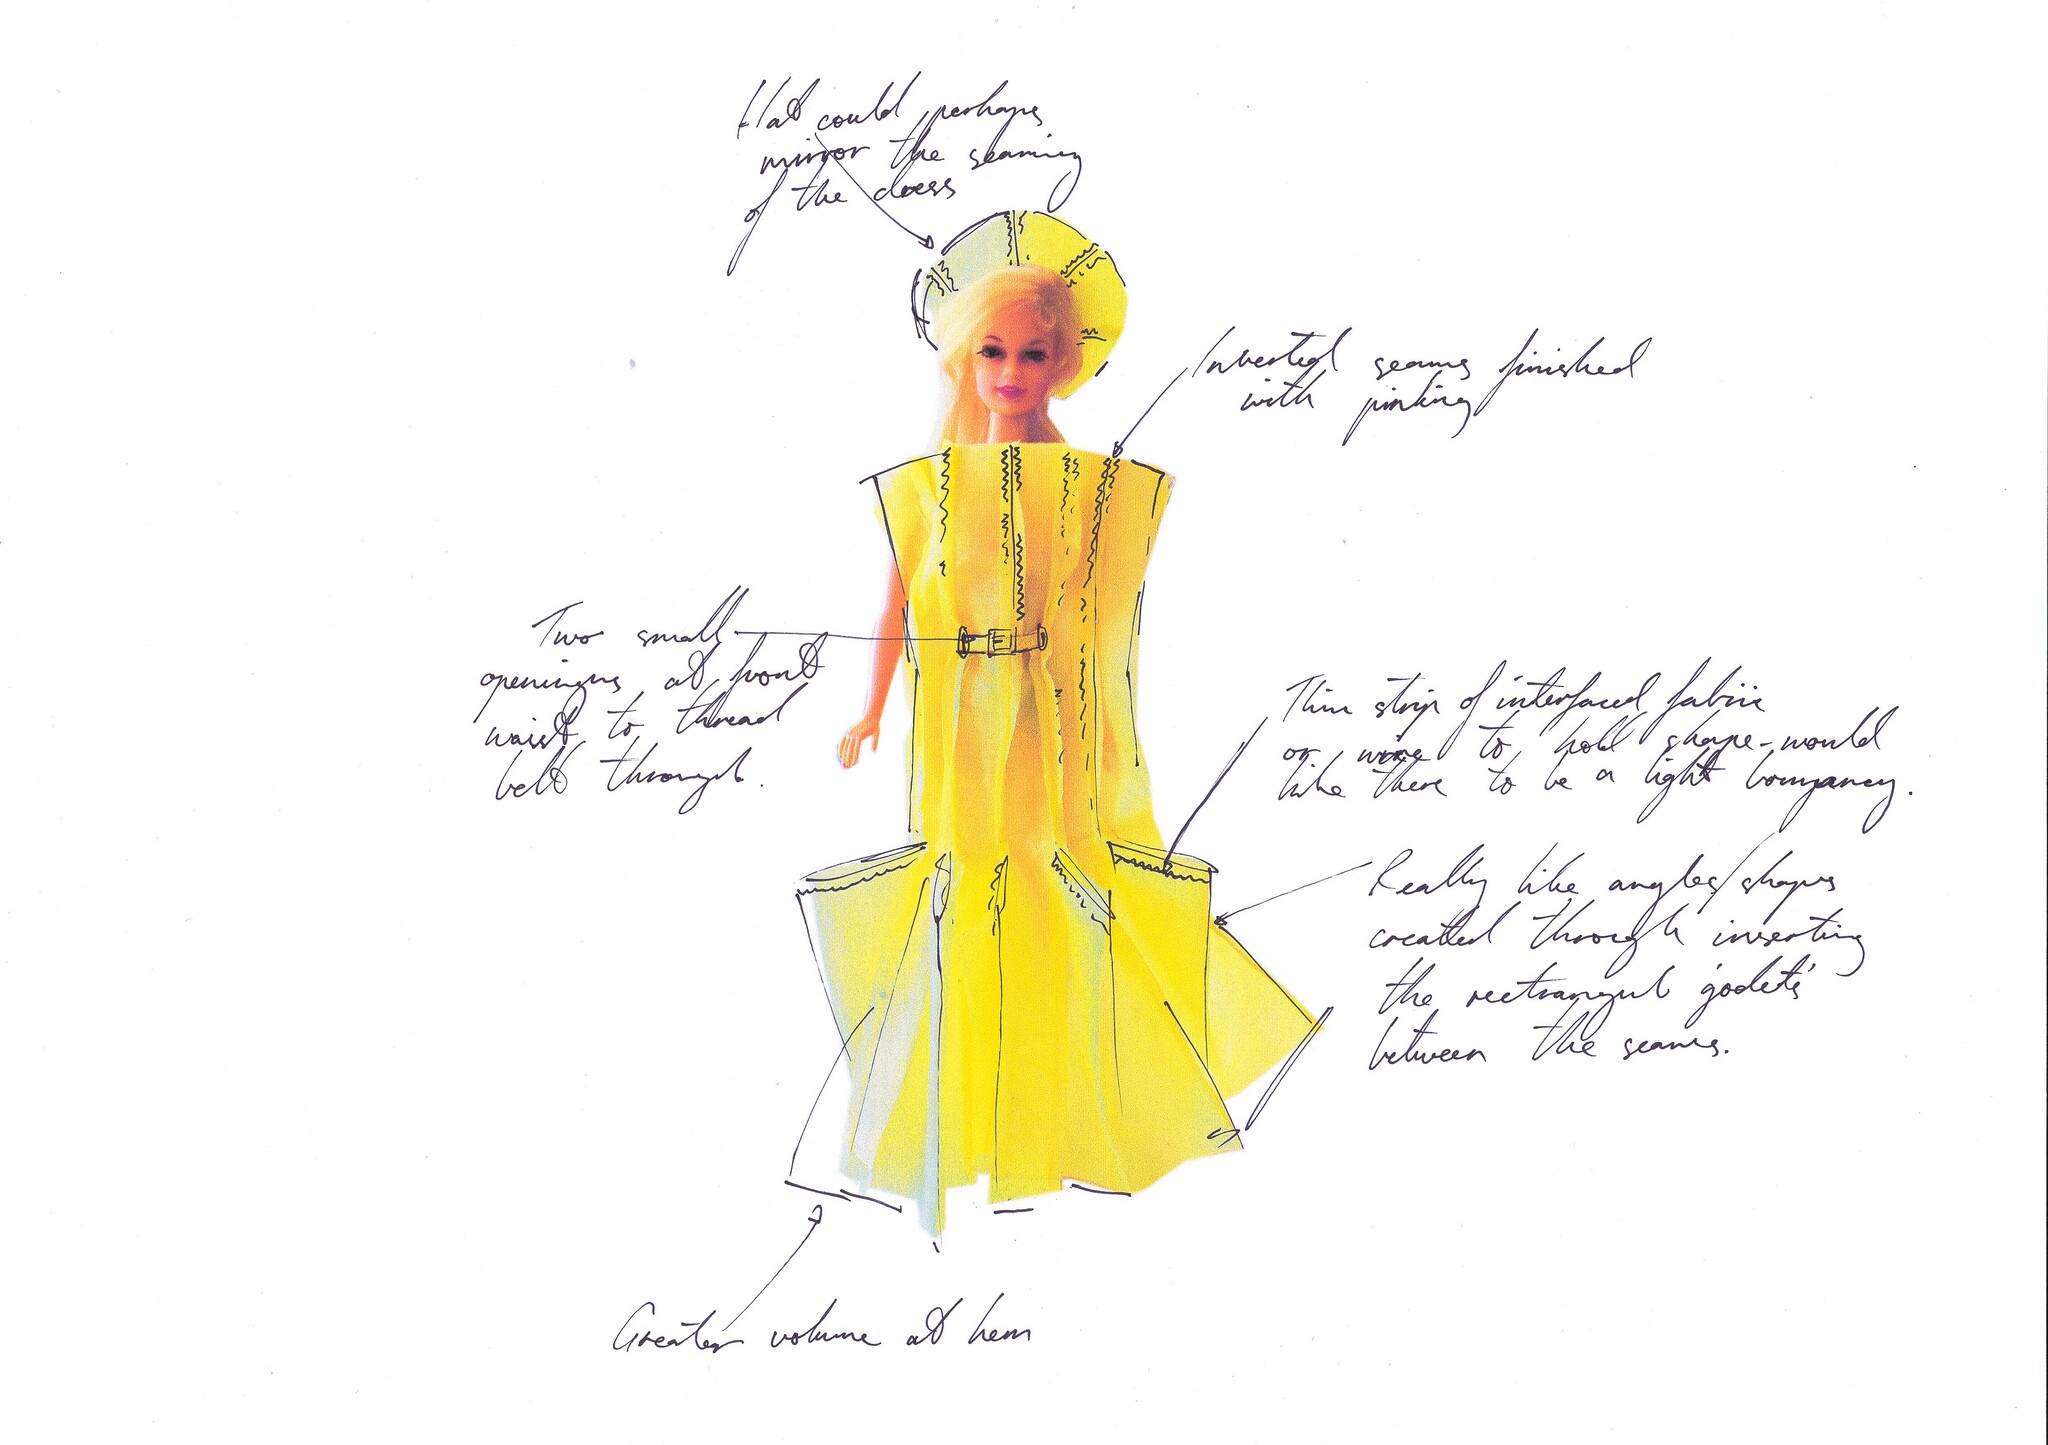 Hat could perhaps
mirror the seaming
of the dress
Inverted seams finished
with pinking
Two small
openings at front
waist to thread
belt through.
Thin strip of interfaced fabric
or wire to hold shape - would
like there to be a light bouyancy.
Really like angles/shapes
created through inserting
the rectangul 'godets'
between the seams.
Greater volume at hem